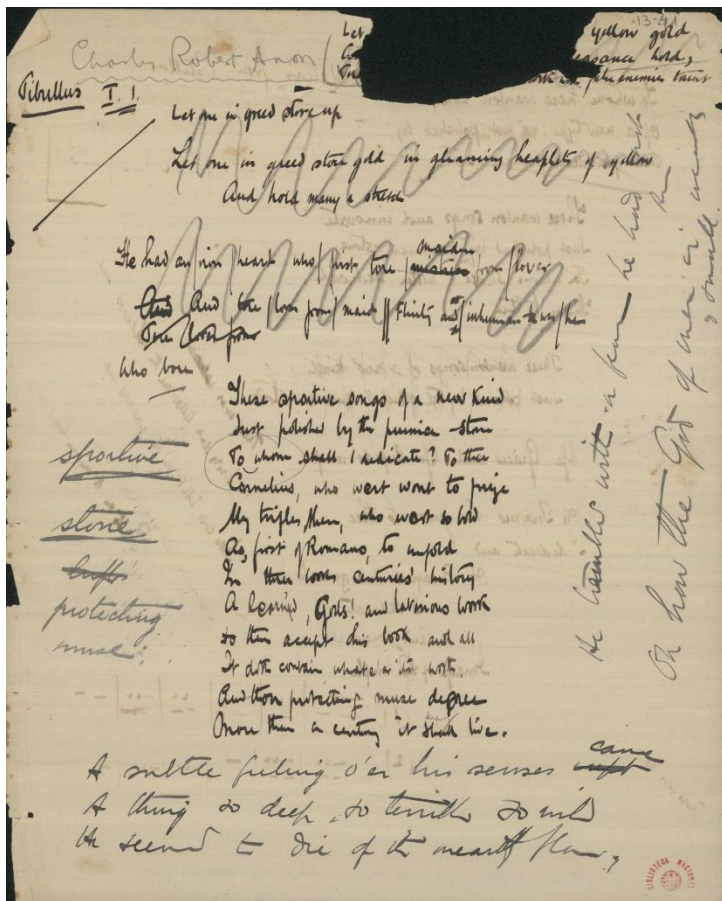 13-4
Charles Robert Anon
Let
yellow gold
hold,
Tibullus I. 1.
Let one in greed store up
Let one in greed store gold in gleaming heaplets of yellow
And hold many a stretch
maiden
He had an iron / heart who / first tore / mistress / from / lover
And And / tore / lover from / maid // Flinty and / inhuman /
Tore / lover from
who bore
These sportive songs of a new kind
Just polished by the pumice-stone
To whom shall I dedicate? To thee
Cornelius, who wert wont to prize
My trifles then, who wert so bold
As, first of Romans, to unfold
In three books centuries' history
A learned, Gods! and laborious work
So then accept this book and all
It doth contain whate'er its worth
And thou protecting muse degree
More than a century it shall live.
sportive
stone
protecting
muse.
came
A subtle feeling o'er his senses
A thing so deep, so terrible so wild
He seemed to die of the
He trembled with a fear he had
Oh how the God of
small.
BIBLIOTECA NACIONAL